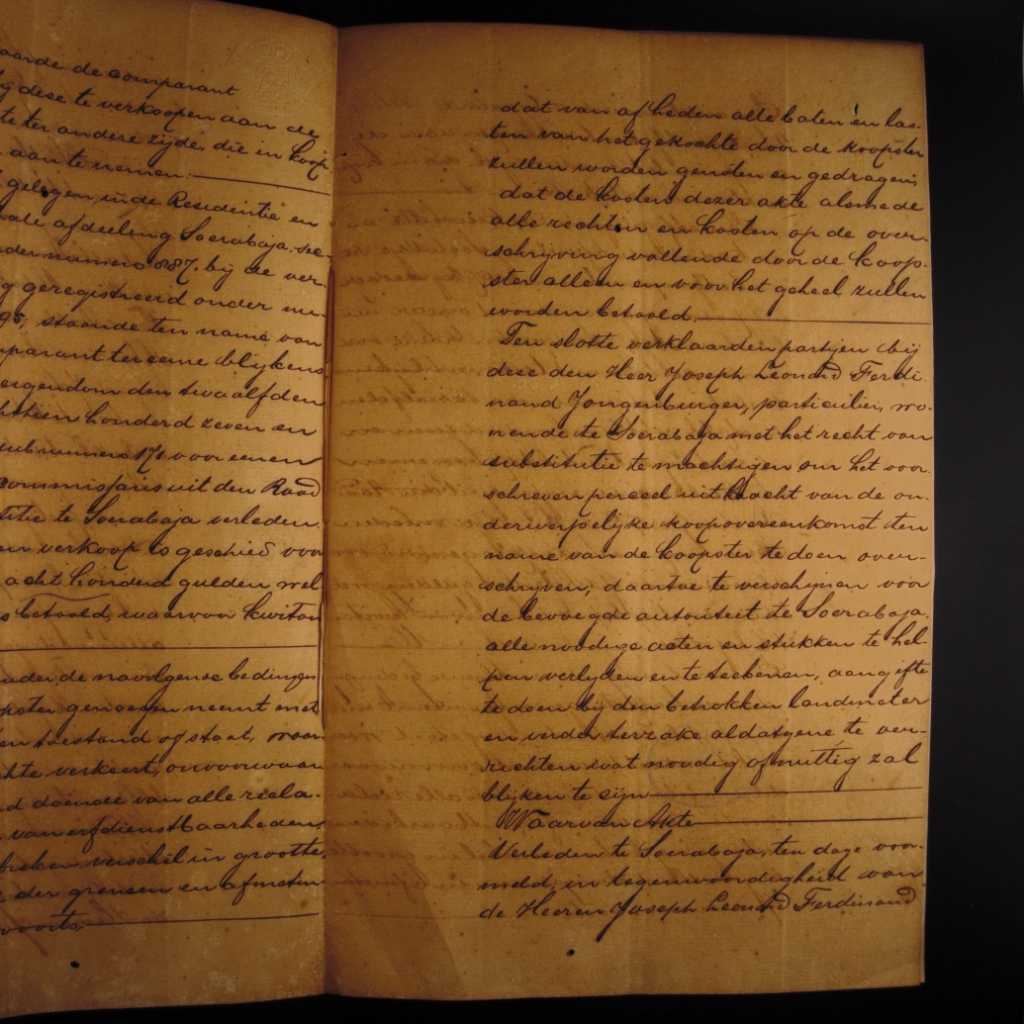 aarde de comparant
dese te verkoopen aan de
te ter andere zijde, die in koop
aan te nemen.
gelegen, in de Residentie en
afdeeling Soerabaja, sec-
numero 887, bij de ver
geregistreerd onder nu-
95, staande ten name van
parant ten eene blijkens
eigendom den twaalfden
honderd zeven en
sub numero 171 voor eenen
Commissaris uit den Raad
titie te Soerabaja verleden
en verkoop is geschied voor
acht honderd gulden, wel
s betaald, waarvoor kwitan
onder de navolgende bedingen
genoegen neemt met
en toestand of staat, waar
verkeert, onvoorwaar
d doende van alle recla-
van erfdienstbaarheden,
breken, verschil in grootte,
der grenzen en afmetin
voorts,
dat van af heden alle baten en las-
ten van het gekochte door de koopster
zullen worden genoten en gedragen;
dat de kosten dezer akte alsmede
alle rechten en kosten op de over-
schrijving vallende door de koop-
ster alleen en voor het geheel zullen
worden betaald.
Ten slotte verklaarden partijen bij
dese den Heer Joseph Leonard Ferdi-
nand Jongenburger, particulier, wo-
nende te Soerabaja met het recht van
substitutie te machtigen om het voor-
schreven perceel uit kracht van de on-
derwerpelijke koopovereenkomst ten
name van de koopster te doen over-
schrijven, daartoe te verschijnen voor
de bevoegde autoriteit te Soerabaja,
alle noodige acten en stukken te hel-
pen verlyden en te teekenen, aangifte
te doen bij den betrokken landmeter
en verder terzake al datgene te ver-
richten wat noodig of nuttig zal
blijken te zijn
Waarvan Akte
Verleden te Soerabaja, ten dage voor-
meld, in tegenwoordigheid van
de Heeren Joseph Leonard Ferdinand